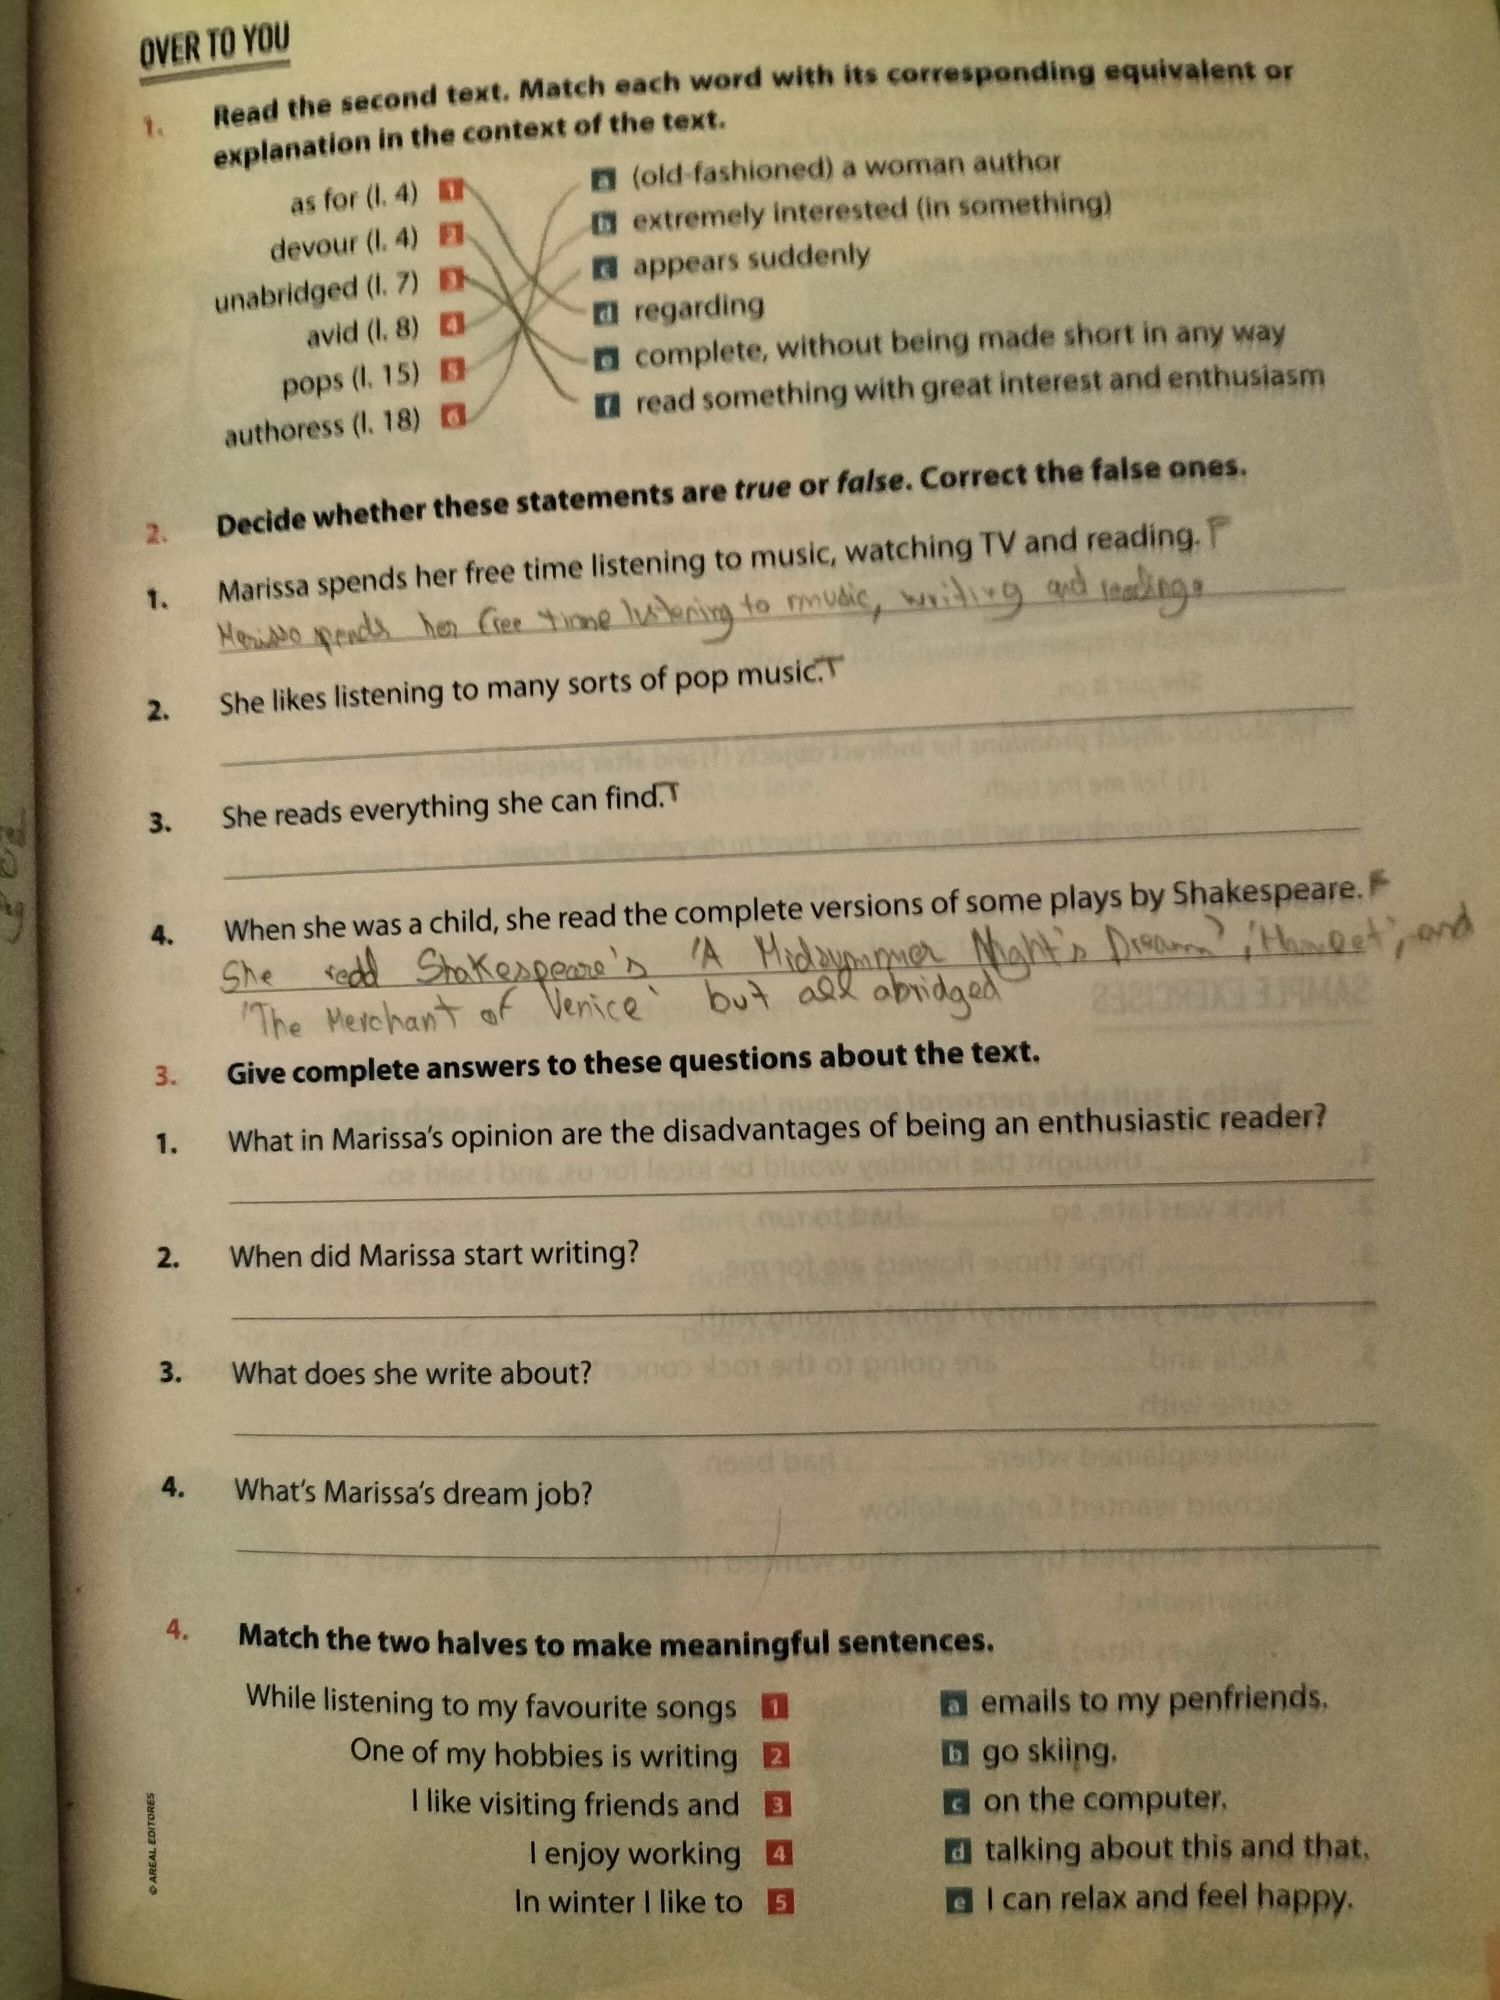 OVER TO YOU
1. Read the second text. Match each word with its corresponding equivalent or
explanation in the context of the text.
as for (l. 4) 1 a (old-fashioned) a woman author
devour (l. 4) 2 b extremely interested (in something)
unabridged (l. 7) 3 c appears suddenly
avid (l. 8) 4 d regarding
pops (l. 15) 5 e complete, without being made short in any way
authoress (l. 18) 6 f read something with great interest and enthusiasm
2. Decide whether these statements are true or false. Correct the false ones.
1. Marissa spends her free time listening to music, watching TV and reading. F
spends her free time listening to music, writing and reading.
2. She likes listening to many sorts of pop music. T
3. She reads everything she can find. T
4. When she was a child, she read the complete versions of some plays by Shakespeare. F
She read Shakespeare's 'A Midsummer Night's Dream', 'Hamlet', and
'The Merchant of Venice' but all abridged
3. Give complete answers to these questions about the text.
1. What in Marissa's opinion are the disadvantages of being an enthusiastic reader?
2. When did Marissa start writing?
3. What does she write about?
4. What's Marissa's dream job?
4. Match the two halves to make meaningful sentences.
While listening to my favourite songs 1 a emails to my penfriends.
One of my hobbies is writing 2 b go skiing.
I like visiting friends and 3 c on the computer.
I enjoy working 4 d talking about this and that.
In winter I like to 5 e I can relax and feel happy.
© AREAL EDITORES